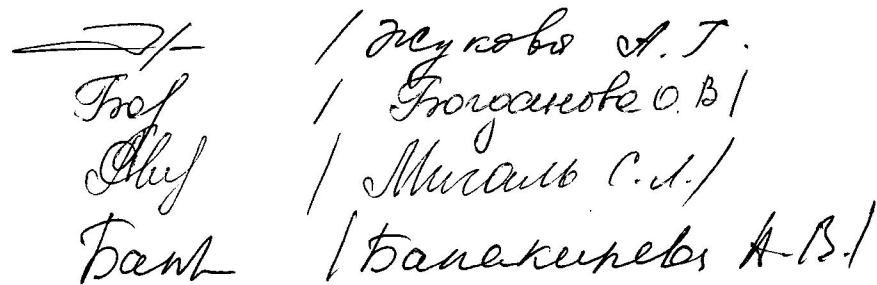 / Жукова А. Г.
Бог / Богданова О. В /
/ Мигаль С. Л. /
Бал / Балакирева А. В. /